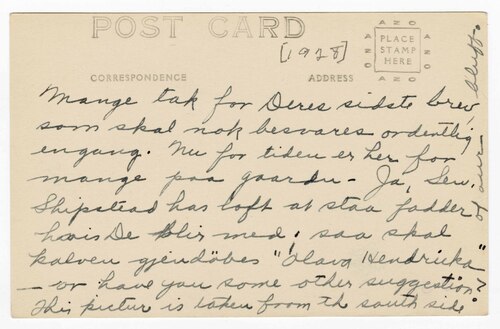 POST CARD
[1928]
AZO
AZO
AZO
AZO
PLACE
STAMP
HERE
CORRESPONDENCE
ADDRESS
Mange tak for Deres sidste brev,
som skal nok besvares ordentlig
engang. Nu for tiden er her for
mange paa gaarden - Ja, Sen.
Shipstead has loft at staa fadder
hvis De blir med; saa skal
kalven gjendöbes "Olava Hendricka"
- or have you some other suggestion?
This pictur is taken from th south side
of our bluff.